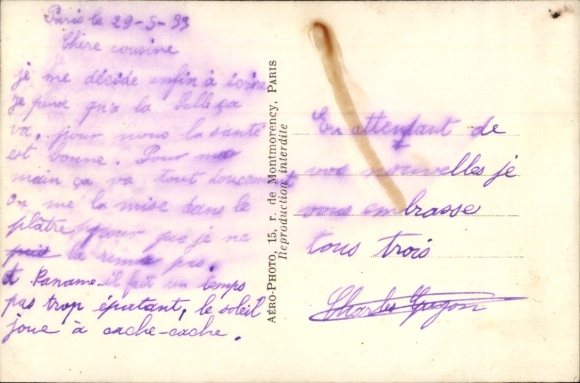 Paris le 29-5-33
Chère cousine
je me décide enfin à écrire
je pense qu'à la belle ça
va, pour nous la santé
est bonne. Pour ma
main ça va tout doucement
on me la mise dans le
plâtre pour que je ne
la remue pas.
A Paname il fait un temps
pas trop épatant, le soleil
joue à cache-cache.
AÉRO-PHOTO, 15, r. de Montmorency, PARIS
Reproduction interdite
En attendant de
vos nouvelles je
vous embrasse
tous trois
Charles